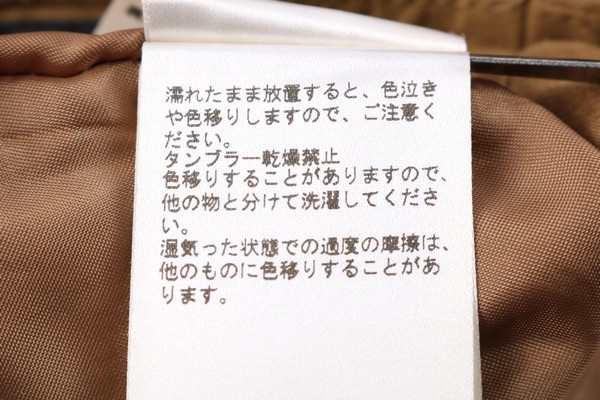 濡れたまま放置すると、色泣き
や色移りしますので、ご注意く
ださい。
タンブラー乾燥禁止
色移りすることがありますので、
他の物と分けて洗濯してくださ
い。
湿気った状態での過度の摩擦は、
他のものに色移りすることがあ
ります。